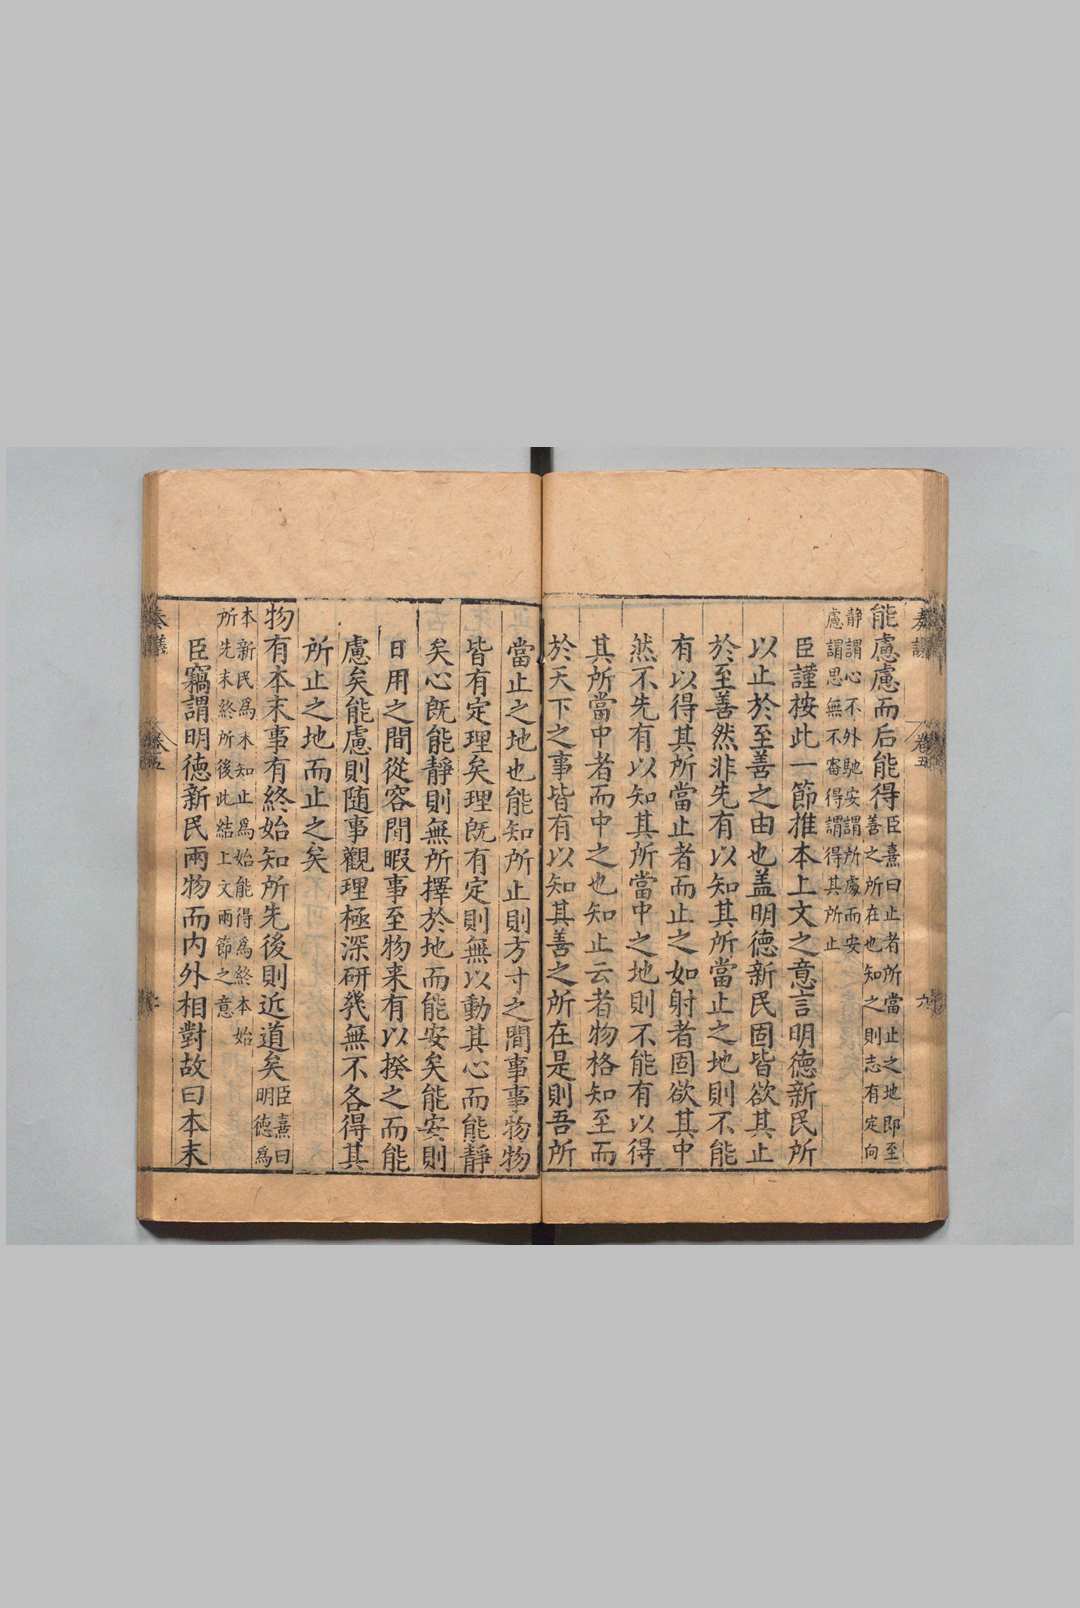 奏議 卷五 九
能慮慮而后能得臣熹曰止者所當止之地即至
善之所在也知之則志有定向
靜謂心不外馳安謂所處而安
慮謂思無不審得謂得其所止
臣謹桉此一節推本上文之意言明德新民所
以止於至善之由也盖明德新民固皆欲其止
於至善然非先有以知其所當止之地則不能
有以得其所當止者而止之如射者固欲其中
然不先有以知其所當中之地則不能有以得
其所當中者而中之也知止云者物格知至而
於天下之事皆有以知其善之所在是則吾所
當止之地也能知所止則方寸之間事事物物
皆有定理矣理既有定則無以動其心而能靜
矣心既能靜則無所擇於地而能安矣能安則
日用之間從容間暇事至物来有以揆之而能
慮矣能慮則随事觀理極深研幾無不各得其
所止之地而止之矣
物有本末事有終始知所先後則近道矣臣熹曰
明德為
本新民為末知止為始能得為終本始
所先末終所後此結上文兩節之意
臣竊謂明德新民兩物而内外相對故曰本末
奏議 卷五